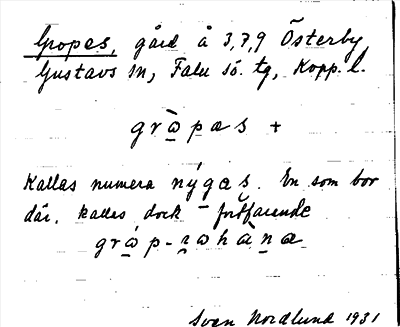 Gropes, gård å 3,7,9 Österby
Gustavs sn, Falu sö. tg, Kopp. l.
grò̱pas +
Kallas numera nýgas. En som bor
där, kallas dock fortfarande
gró̱p-
Sven Nordlund 1931